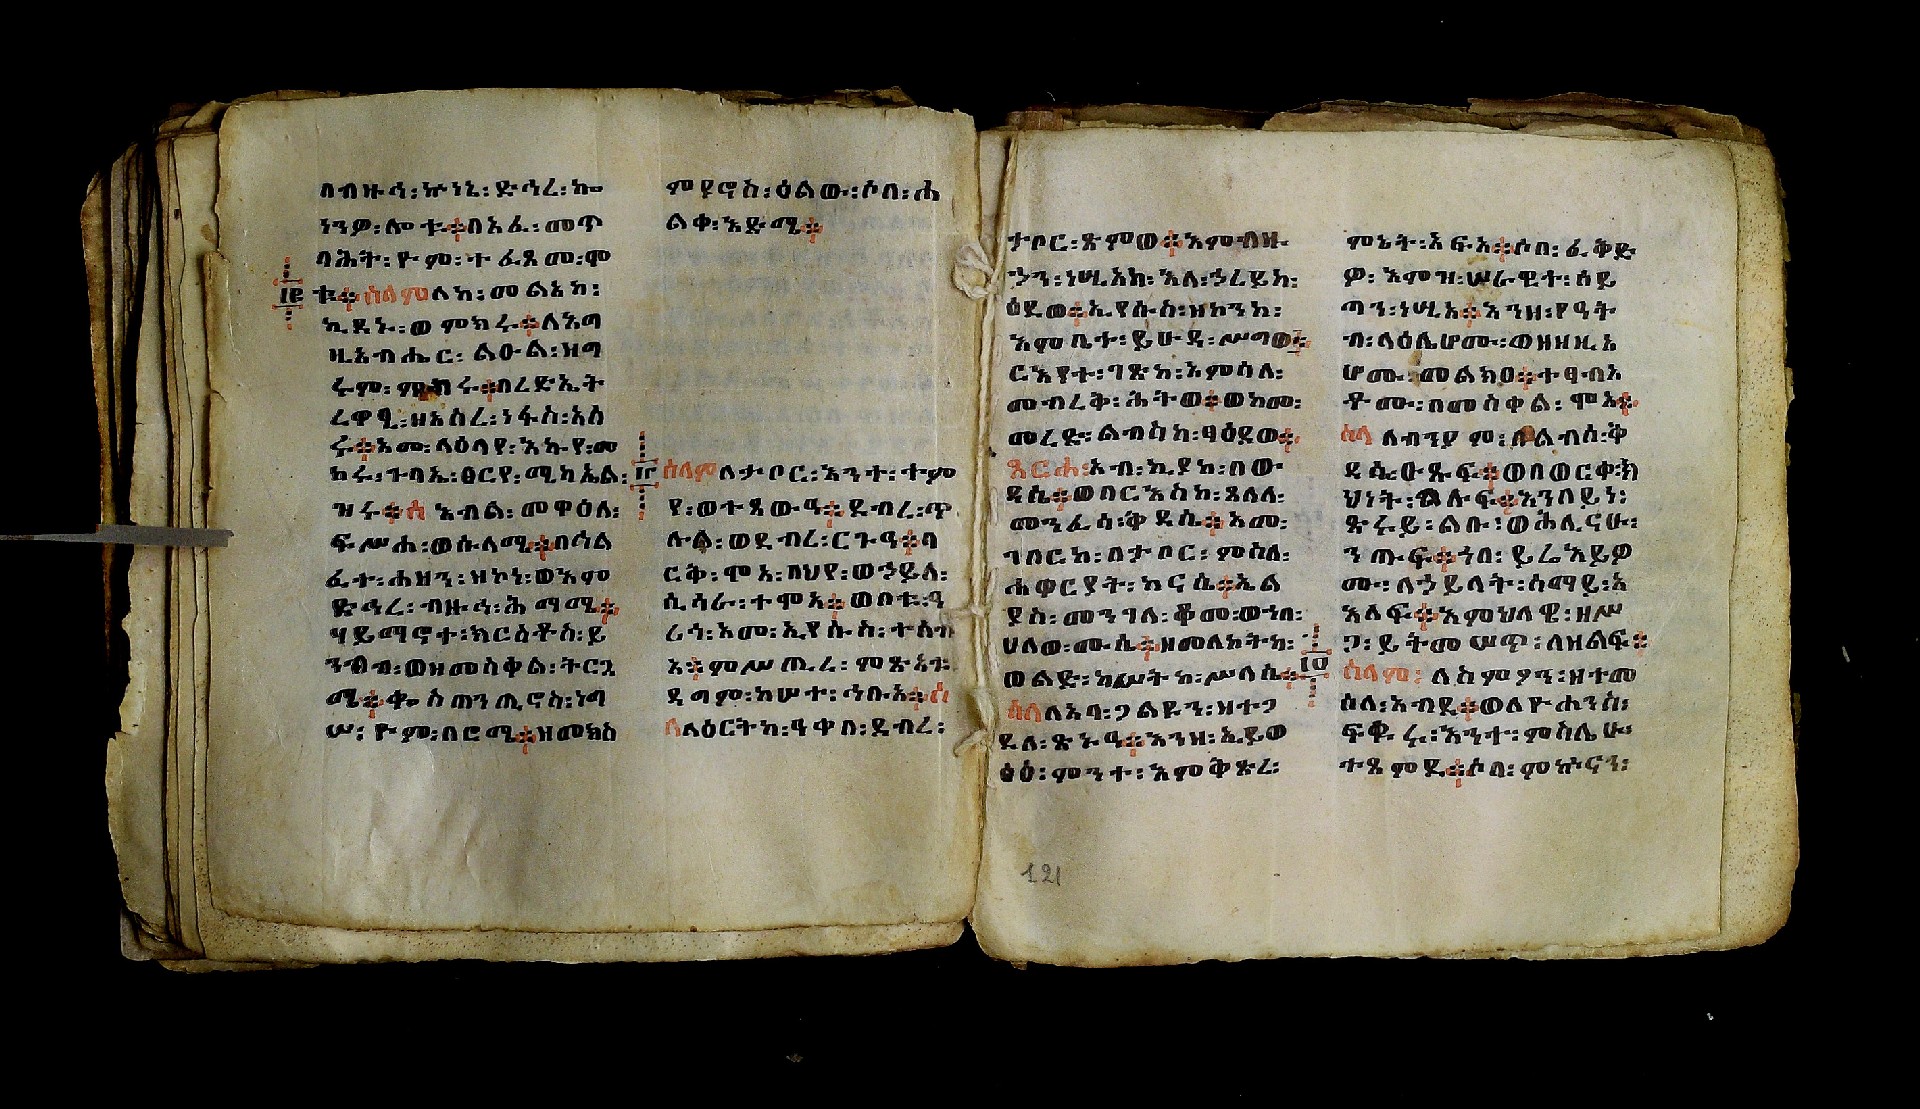 በብዙኅ፡ ኵነኔ፡ ድኅረ፡ ኰ
ነንዎ፡ ሎቱ። በአፈ፡ መጥ
ባሕት፡ ዮም፡ ተፈጸመ፡ ሞ
ቱ። ሰላም ለከ፡ መልአከ፡
ኪዳኑ፡ ወምክሩ። ለእግ
ዚአብሔር፡ ልዑል፡ ዘግ
ሩም፡ ምክሩ። በረድኤት
ረዋጺ፡ ዘአስረ፡ ነፋስ፡ አሰ
ሩ። አመ፡ ላዕላየ፡ አኩየ፡ መ
ከሩ፡ ጉባኤ፡ ፀርየ፡ ሚካኤል፡
ዝሩ። ሰ እብል፡ መዋዕለ፡
ፍሥሐ፡ ወሰላሚ። በኀል
ፈተ፡ ሐዘን፡ ዘኮነ፡ ወእም
ድኅረ፡ ብዙኅ፡ ሕማሚ።
ሃይማኖተ፡ ክርስቶስ፡ ይ
ንግብ፡ ወዘመስቀል፡ ትርጓ
ሜ። ቈስጠንጢኖስ፡ ነግ
ሠ፡ ዮም፡ በሮሜ። ዘመክስ
ምያኖስ፡ ዕልው፡ ሶበ፡ ሐ
ልቀ፡ እድሜ።
፲፮ ሰላም ለታቦር፡ እንተ፡ ተም
የ፡ ወተጸውዓ። ደብረ፡ ጥ
ሉል፡ ወደብረ፡ ርጉዓ። ባ
ርቅ፡ ሞአ፡ በህየ፡ ወኃይለ፡
ሲሳራ፡ ተሞአ። ወቦቱ፡ ዓ
ሪጎ፡ አመ፡ ኢየሱስ፡ ተሰብ
አ። ምሥጢረ፡ ምጽአቱ፡
ዳግም፡ ከሠተ፡ ኅቡአ። ሰ
ላ ለዕርትከ፡ ዓቀበ፡ ደብረ፡
ታቦር፡ ጽምወ። እምብዙ
ኃን፡ ነሢአከ፡ እለ፡ ኃረይከ፡
ዕደወ። ኢየሱስ፡ ዘኮንከ፡
እምቤተ፡ ይሁዳ፡ ሥግወ።
ርእየተ፡ ገጽከ፡ እምሰለ፡
መብረቅ፡ ሕትወ። ወከመ፡
መረዳ፡ ልብስከ፡ ፃዕደወ።
ጼርሐ፡ አብ፡ ኪያከ፡ በው
ዳሴ። ወበርእስከ፡ ጸለለ፡
መንፈሰ፡ ቅዳሴ። አመ፡
ገበርከ፡ በታቦር፡ ምስለ፡
ሐዋርያት፡ ክናሴ። ኤል
ያስ፡ መንገለ፡ ቆመ፡ ወኀበ፡
ሀለወ፡ ሙሴ። ዘመለኮትከ፡
ወልድ፡ ከሥትከ፡ ሥላሴ።
ሰላ ለአባ፡ ጋልዮን፡ ዘተጋ
ደለ፡ ጽኑዓ። እንዘ፡ ኢይወ
ፅዕ፡ ምንተ፡ እምቅጽረ፡
ምኔት፡ አፍአ። ሶበ፡ ፈቅደ
ዎ፡ እምዝ፡ ሠራዊተ፡ ሰይ
ጣን፡ ነሢአ። እንዘ፡ የዓት
ብ፡ ላዕሌሆሙ፡ ወዘዘዚአ
ሆሙ፡ መልክዐ። ተፃብአ
ቶሙ፡ በመስቀል፡ ሞአ።
ሰላ ለብንያም፡ ለልብሰ፡ ቅ
ዳሴ፡ ዑጹፍ። ወበወርቀ፡ ክ
ህነት፡ ክሉፍ። እንበይነ፡
ጽሩይ፡ ልቡ፡ ወሕሊናሁ፡
ንጡፍ። ኀበ፡ ይሬእይዎ
ሙ፡ ለኃይላት፡ ሰማይ፡ አ
እላፍ። እምህላዌ፡ ዘሥ
ጋ፡ ይትመሠጥ፡ ለዘልፍ።
፲፰ ሰላም፡ ለስምዖን፡ ዘተመ
ሰለ፡ አብዳ። ወለዮሐንስ፡
ፍቁሩ፡ እንተ፡ ምስሌሁ፡
ተጸምደ። ሶበ፡ ምኵናን፡
121